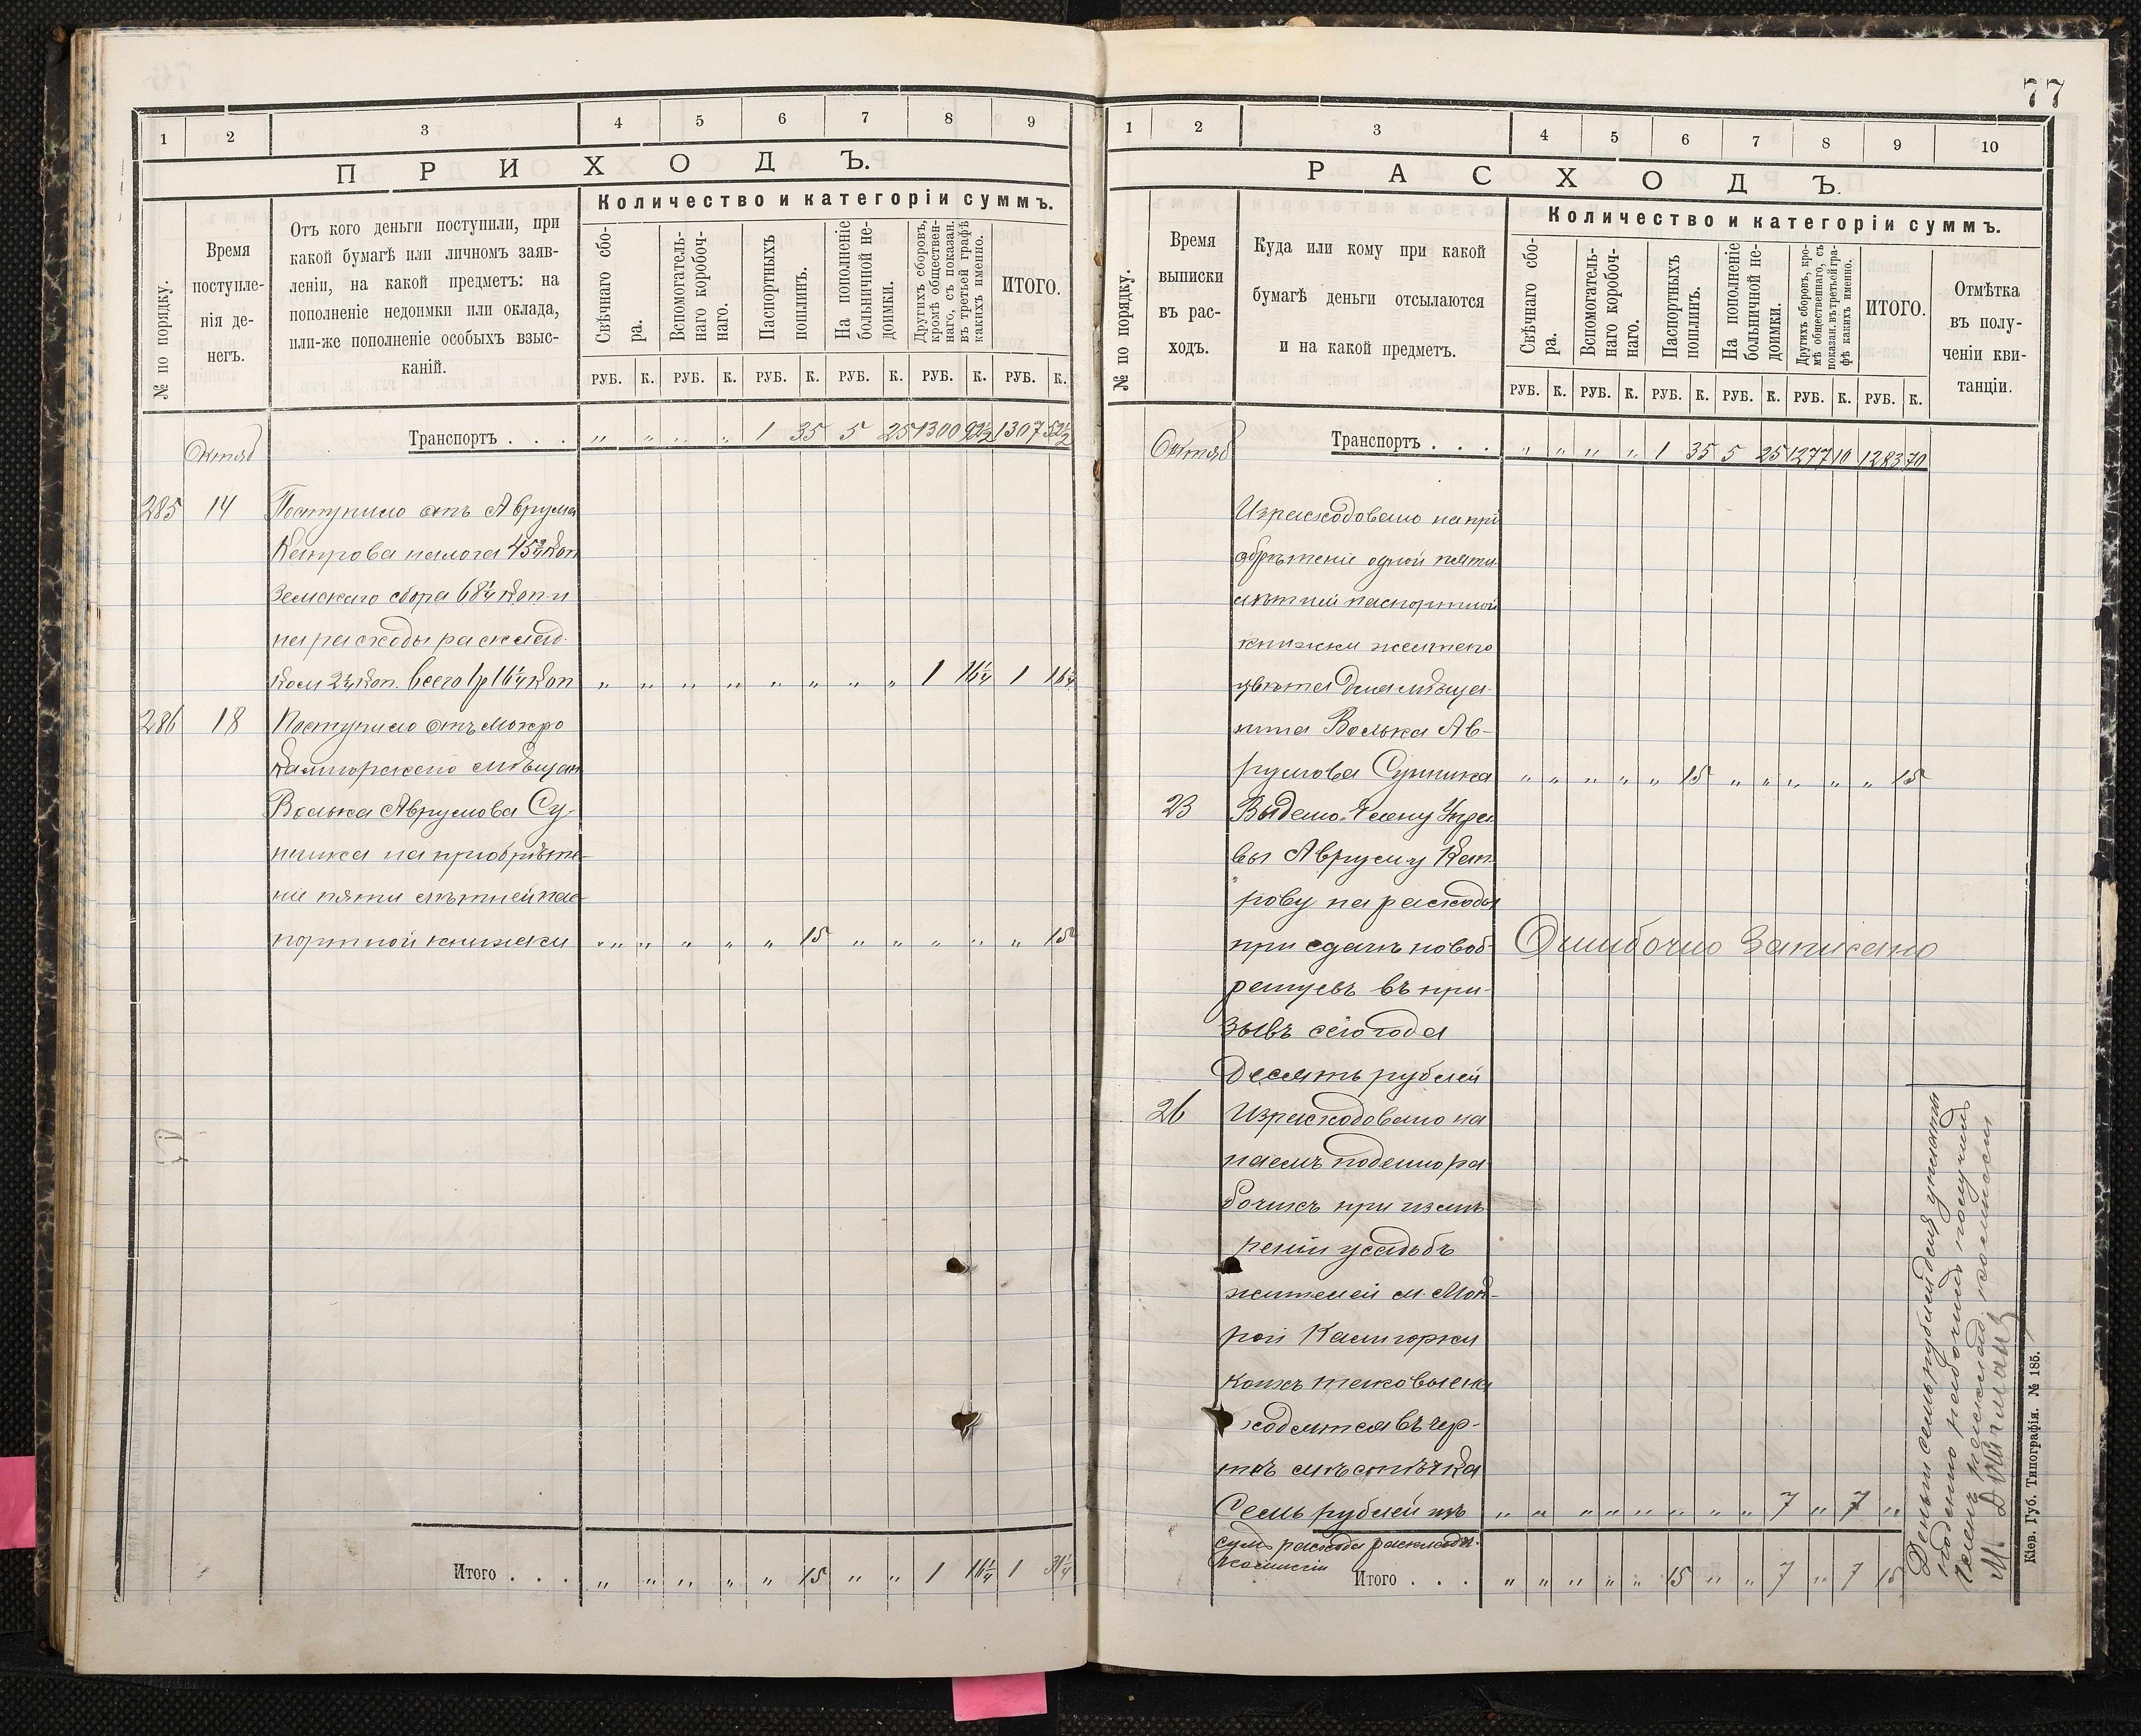 1 2 3 4 5 6 7 8 9
ПРИХОДЪ.
№ по порядку.
Время поступле-
нія де-
негъ.
Отъ кого деньги поступили, при
какой бумагѣ или личномъ заяв-
леніи, на какой предметъ: на
пополненіе недоимки или оклада,
или-же пополненіе особыхъ взыс-
каній.
Количество и категоріи суммъ.
Свѣчнаго сбо-
ра.
Вспомогатель-
наго коробоч-
наго.
Паспортныхъ
пошлинъ.
На пополненіе
больничной не-
доимки.
Другихъ сборовъ,
кромѣ обществен-
наго, съ показан.
въ третьей графѣ
какихъ именно.
ИТОГО.
РУБ. К. РУБ. К. РУБ. К. РУБ. К. РУБ. К. РУБ. К.
Октяб Транспортъ . . . „ „ „ „ 1 35 5 25 1300 92½ 1307 52½
285 14 Поступило отъ Аврума
Капрова налога 45¾ коп
Земскаго сбора 68¼ коп. и
на расходы расклад.
ком 2¼ коп. всего 1р 16¼ коп „ „ „ „ „ „ „ „ 1 16¼ 1 16¼
286 18 Поступило отъ Мокро
Калигорскаго мѣщан
Волька Аврумова Су-
пника на приобрѣте-
ніе пяти лѣтней пас-
портной книжки „ „ „ „ „ 15 „ „ „ „ „ 15
Итого . . . „ „ „ „ „ 15 „ „ 1 16¼ 1 31¼
77
1 2 3 4 5 6 7 8 9 10
РАСХОДЪ.
№ по порядку.
Время
выписки
въ рас-
ходъ.
Куда или кому при какой
бумагѣ деньги отсылаются
и на какой предметъ.
Количество и категоріи суммъ.
Свѣчнаго сбо-
ра.
Вспомогатель-
наго коробоч-
наго.
Паспортныхъ
пошлинъ.
На пополненіе
больничной не-
доимки.
Другихъ сборовъ, кро-
мѣ общественнаго, съ
показан. въ третьей гра-
фѣ какихъ именно.
ИТОГО.
Отмѣтка
въ полу-
ченіи кви-
танціи.
РУБ. К. РУБ. К. РУБ. К. РУБ. К. РУБ. К. РУБ. К.
Октяб Транспортъ . . . „ „ „ „ 1 35 5 25 1277 10 1283 70
Израсходовано на прі
обрѣтеніе одной пяти
лѣтней паспортной
книжки желтаго
цвѣта для мѣща-
нина Волька Ав-
румова Супника „ „ „ „ „ 15 „ „ „ „ „ 15
23 Выдано Члену Упра
вы Авруму Кап-
рову на расходы
при сдачѣ новоб- Ошибочно записано
ранцевъ въ при-
зывъ сего года
Десять рублей
26 Израсходовано на
наемъ поденно ра-
бочихъ при измѣ
реніи усадьбъ
жителей м. Мок-
рой Калигорки
коихъ таковые на
ходятся въ чер-
тѣ мѣстечка
Семь рублей изъ „ „ „ „ „ „ „ „ 7 „ 7 „
сумъ расхода раскладн.
комиссіи
Итого . . . „ „ „ „ „ 15 „ „ 7 „ 7 15
Деньги семь рублей для уплаты
поденно рабочимъ получилъ
членъ расклад. комиссіи
Кіев. Губ. Типографія. № 185.